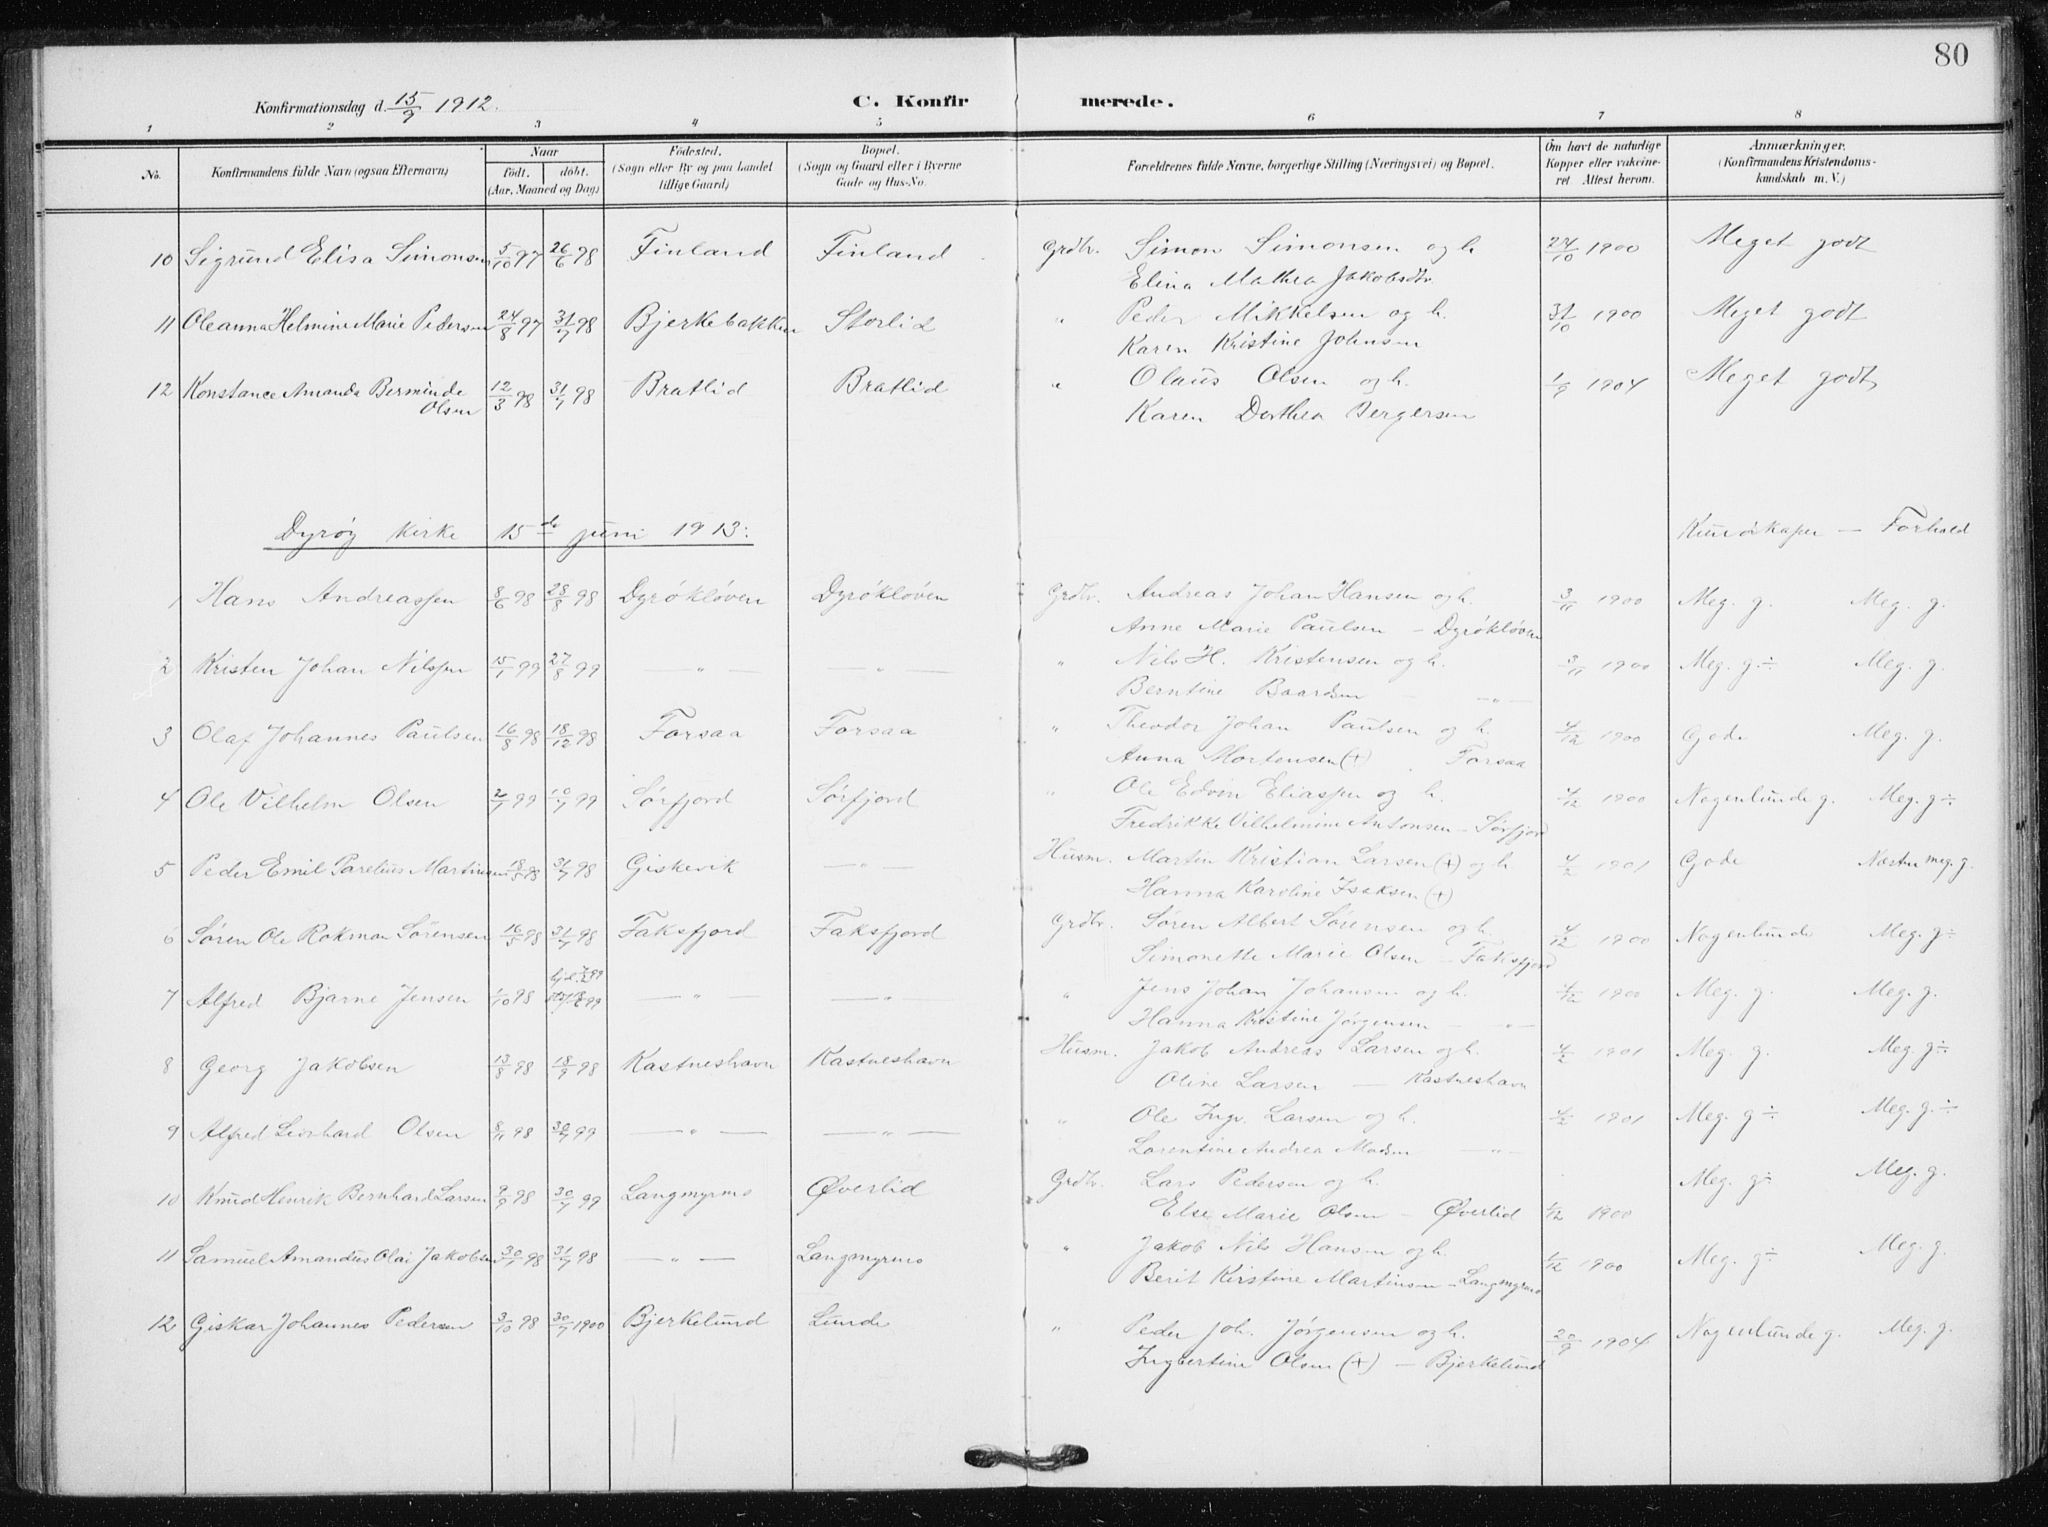 80
Konfirmationsdag d. 15/9 1912. C. Konfirmerede.
1 2 3 4 5 6 7 8
No. Konfirmandens fulde Navn (ogsaa Efternavn) Naar födt. döbt. (Aar, Maaned og Dag) Födested. (Sogn eller By og paa Landet tillige Gaard) Bopæl. (Sogn og Gaard eller i Byerne Gade og Hus-No. Forældrenes fulde Navne, borgerlige Stilling (Næringsvei) og Bopæl. Om havt de naturlige Kopper eller vakcineret. Attest herom. Anmærkninger. (Konfirmandens Kristendomskundskab m. V.)
10 Sigrund Elisa Simonsen 5/10 97 26/6 98 Finland Finland Grdbr. Simon Simonsen og h. 24/10 1900 Meget godt
Elina Mathea Jakobsdtr.
11 Oleanna Helmine Marie Pedersen 24/8 97 31/7 98 Bjerkebakken Storlid " Peder Mikkelsen og h. 31/10 1900 Meget godt
Karen Kristine Johnsen
12 Konstance Amanda Berminde 12/3 98 31/7 98 Bratlid Bratlid " Olaus Olsen og h. 1/9 1904 Meget godt
Olsen Karen Dorthea Bergersen
Dyrøy Kirke 15de juni 1913: Kundskaper — Forhold
1 Hans Andreassen 8/6 98 28/8 98 Dyrökløven Dyrökløven Grdbr. Andreas Johan Hansen og h. 3/11 1900 Meg. g. Meg. g.
Anne Marie Paulsen – Dyrökløven
2 Kristen Johan Nilssen 15/1 99 27/8 99 — " — — " — " Nils H. Kristensen og h. 3/11 1900 Meg. g ÷ Meg. g.
Berntine Baardsen — " —
3 Olaf Johannes Paulsen 16/8 98 18/12 98 Forsaa Forsaa " Theodor Johan Paulsen og h. 4/12 1900 Gode Meg. g.
Anna Mortensen (+) Forsaa
4 Ole Vilhelm Olsen 2/1 99 10/7 99 Sørfjord Sørfjord " Ole Edvin Eliassen og h. 4/12 1900 Nogenlunde g. Meg. g ÷
Fredrikke Vilhelmine Antonsen – Sørfjord
5 Peder Emil Parelius Martinsen 18/5 98 31/7 98 Giskevik — " — Husm. Martin Kristian Larsen (+) og h. 4/2 1901 Gode Næsten meg. g.
Hanna Karoline Isaksen (+)
6 Søren Ole Rokman Sørensen 16/5 98 31/7 98 Faksfjord Faksfjord Grdbr. Søren Albert Sørensen og h. 4/12 1900 Nogenlunde Meg. g ÷
Simonette Marie Olsen – Faksfjord
7 Alfred Bjarne Jensen 1/10 98 — " — — " — " Jens Johan Johansen og h. 4/12 1900 Meg. g. Meg. g.
Hanna Kristine Jørgensen — " —
8 Georg Jakobsen 13/8 98 18/9 98 Kastneshavn Kastneshavn Husm. Jakob Andreas Larsen og h. 4/2 1901 Meg. g. Meg. g ÷
Oline Larsen — Kastneshavn
9 Alfred Leonhard Olsen 8/11 98 30/7 99 — " — — " — " Ole Ingv. Larsen og h. 4/2 1901 Meg. g ÷ Meg. g. ÷
Lorentine Andrea Madsen — " —
10 Knud Henrik Bernhard Larsen 9/9 98 30/7 99 Langmyrmo Øverlid Grdbr. Lars Pedersen og h. Meg. g ÷ Meg. g.
Else Marie Olsen – Øverlid 1/12 1900
11 Samuel Amandus Olai Jakobsen 30/1 98 31/7 98 — " — Langmyrmo " Jakob Nils Hansen og h. 1/12 1900 Meg. g ÷ Meg. g.
Berit Kirstine Martinsen – Langmyrmo
12 Giskar Johannes Pedersen 3/10 98 30/7 1900 Bjerkelund Lunde " Peder Joh. Jørgensen og h. 20/9 1904 Nogenlunde g. Meg. g.
Ingbertine Olsen (+) – Bjerkelund